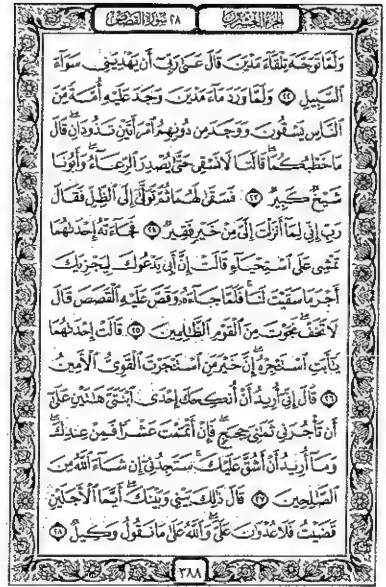 الجزء العشرون ٢٨ سورة القصص
وَلَمَّا تَوَجَّهَ تِلْقَاءَ مَدْيَنَ قَالَ عَسَىٰ رَبِّي أَن يَهْدِيَنِي سَوَاءَ
السَّبِيلِ ﴿٢٢﴾ وَلَمَّا وَرَدَ مَاءَ مَدْيَنَ وَجَدَ عَلَيْهِ أُمَّةً مِّنَ
النَّاسِ يَسْقُونَ وَوَجَدَ مِن دُونِهِمُ امْرَأَتَيْنِ تَذُودَانِ ۖ قَالَ
مَا خَطْبُكُمَا ۖ قَالَتَا لَا نَسْقِي حَتَّىٰ يُصْدِرَ الرِّعَاءُ ۖ وَأَبُونَا
شَيْخٌ كَبِيرٌ ﴿٢٣﴾ فَسَقَىٰ لَهُمَا ثُمَّ تَوَلَّىٰ إِلَى الظِّلِّ فَقَالَ
رَبِّ إِنِّي لِمَا أَنزَلْتَ إِلَيَّ مِنْ خَيْرٍ فَقِيرٌ ﴿٢٤﴾ فَجَاءَتْهُ إِحْدَاهُمَا
تَمْشِي عَلَى اسْتِحْيَاءٍ قَالَتْ إِنَّ أَبِي يَدْعُوكَ لِيَجْزِيَكَ
أَجْرَ مَا سَقَيْتَ لَنَا ۚ فَلَمَّا جَاءَهُ وَقَصَّ عَلَيْهِ الْقَصَصَ قَالَ
لَا تَخَفْ ۖ نَجَوْتَ مِنَ الْقَوْمِ الظَّالِمِينَ ﴿٢٥﴾ قَالَتْ إِحْدَاهُمَا
يَا أَبَتِ اسْتَأْجِرْهُ ۖ إِنَّ خَيْرَ مَنِ اسْتَأْجَرْتَ الْقَوِيُّ الْأَمِينُ
﴿٢٦﴾ قَالَ إِنِّي أُرِيدُ أَنْ أُنكِحَكَ إِحْدَى ابْنَتَيَّ هَاتَيْنِ عَلَىٰ
أَن تَأْجُرَنِي ثَمَانِيَ حِجَجٍ ۖ فَإِنْ أَتْمَمْتَ عَشْرًا فَمِنْ عِندِكَ ۖ
وَمَا أُرِيدُ أَنْ أَشُقَّ عَلَيْكَ ۚ سَتَجِدُنِي إِن شَاءَ اللَّهُ مِنَ
الصَّالِحِينَ ﴿٢٧﴾ قَالَ ذَٰلِكَ بَيْنِي وَبَيْنَكَ ۖ أَيَّمَا الْأَجَلَيْنِ
قَضَيْتُ فَلَا عُدْوَانَ عَلَيَّ ۖ وَاللَّهُ عَلَىٰ مَا نَقُولُ وَكِيلٌ ﴿٢٨﴾
٣٨٨